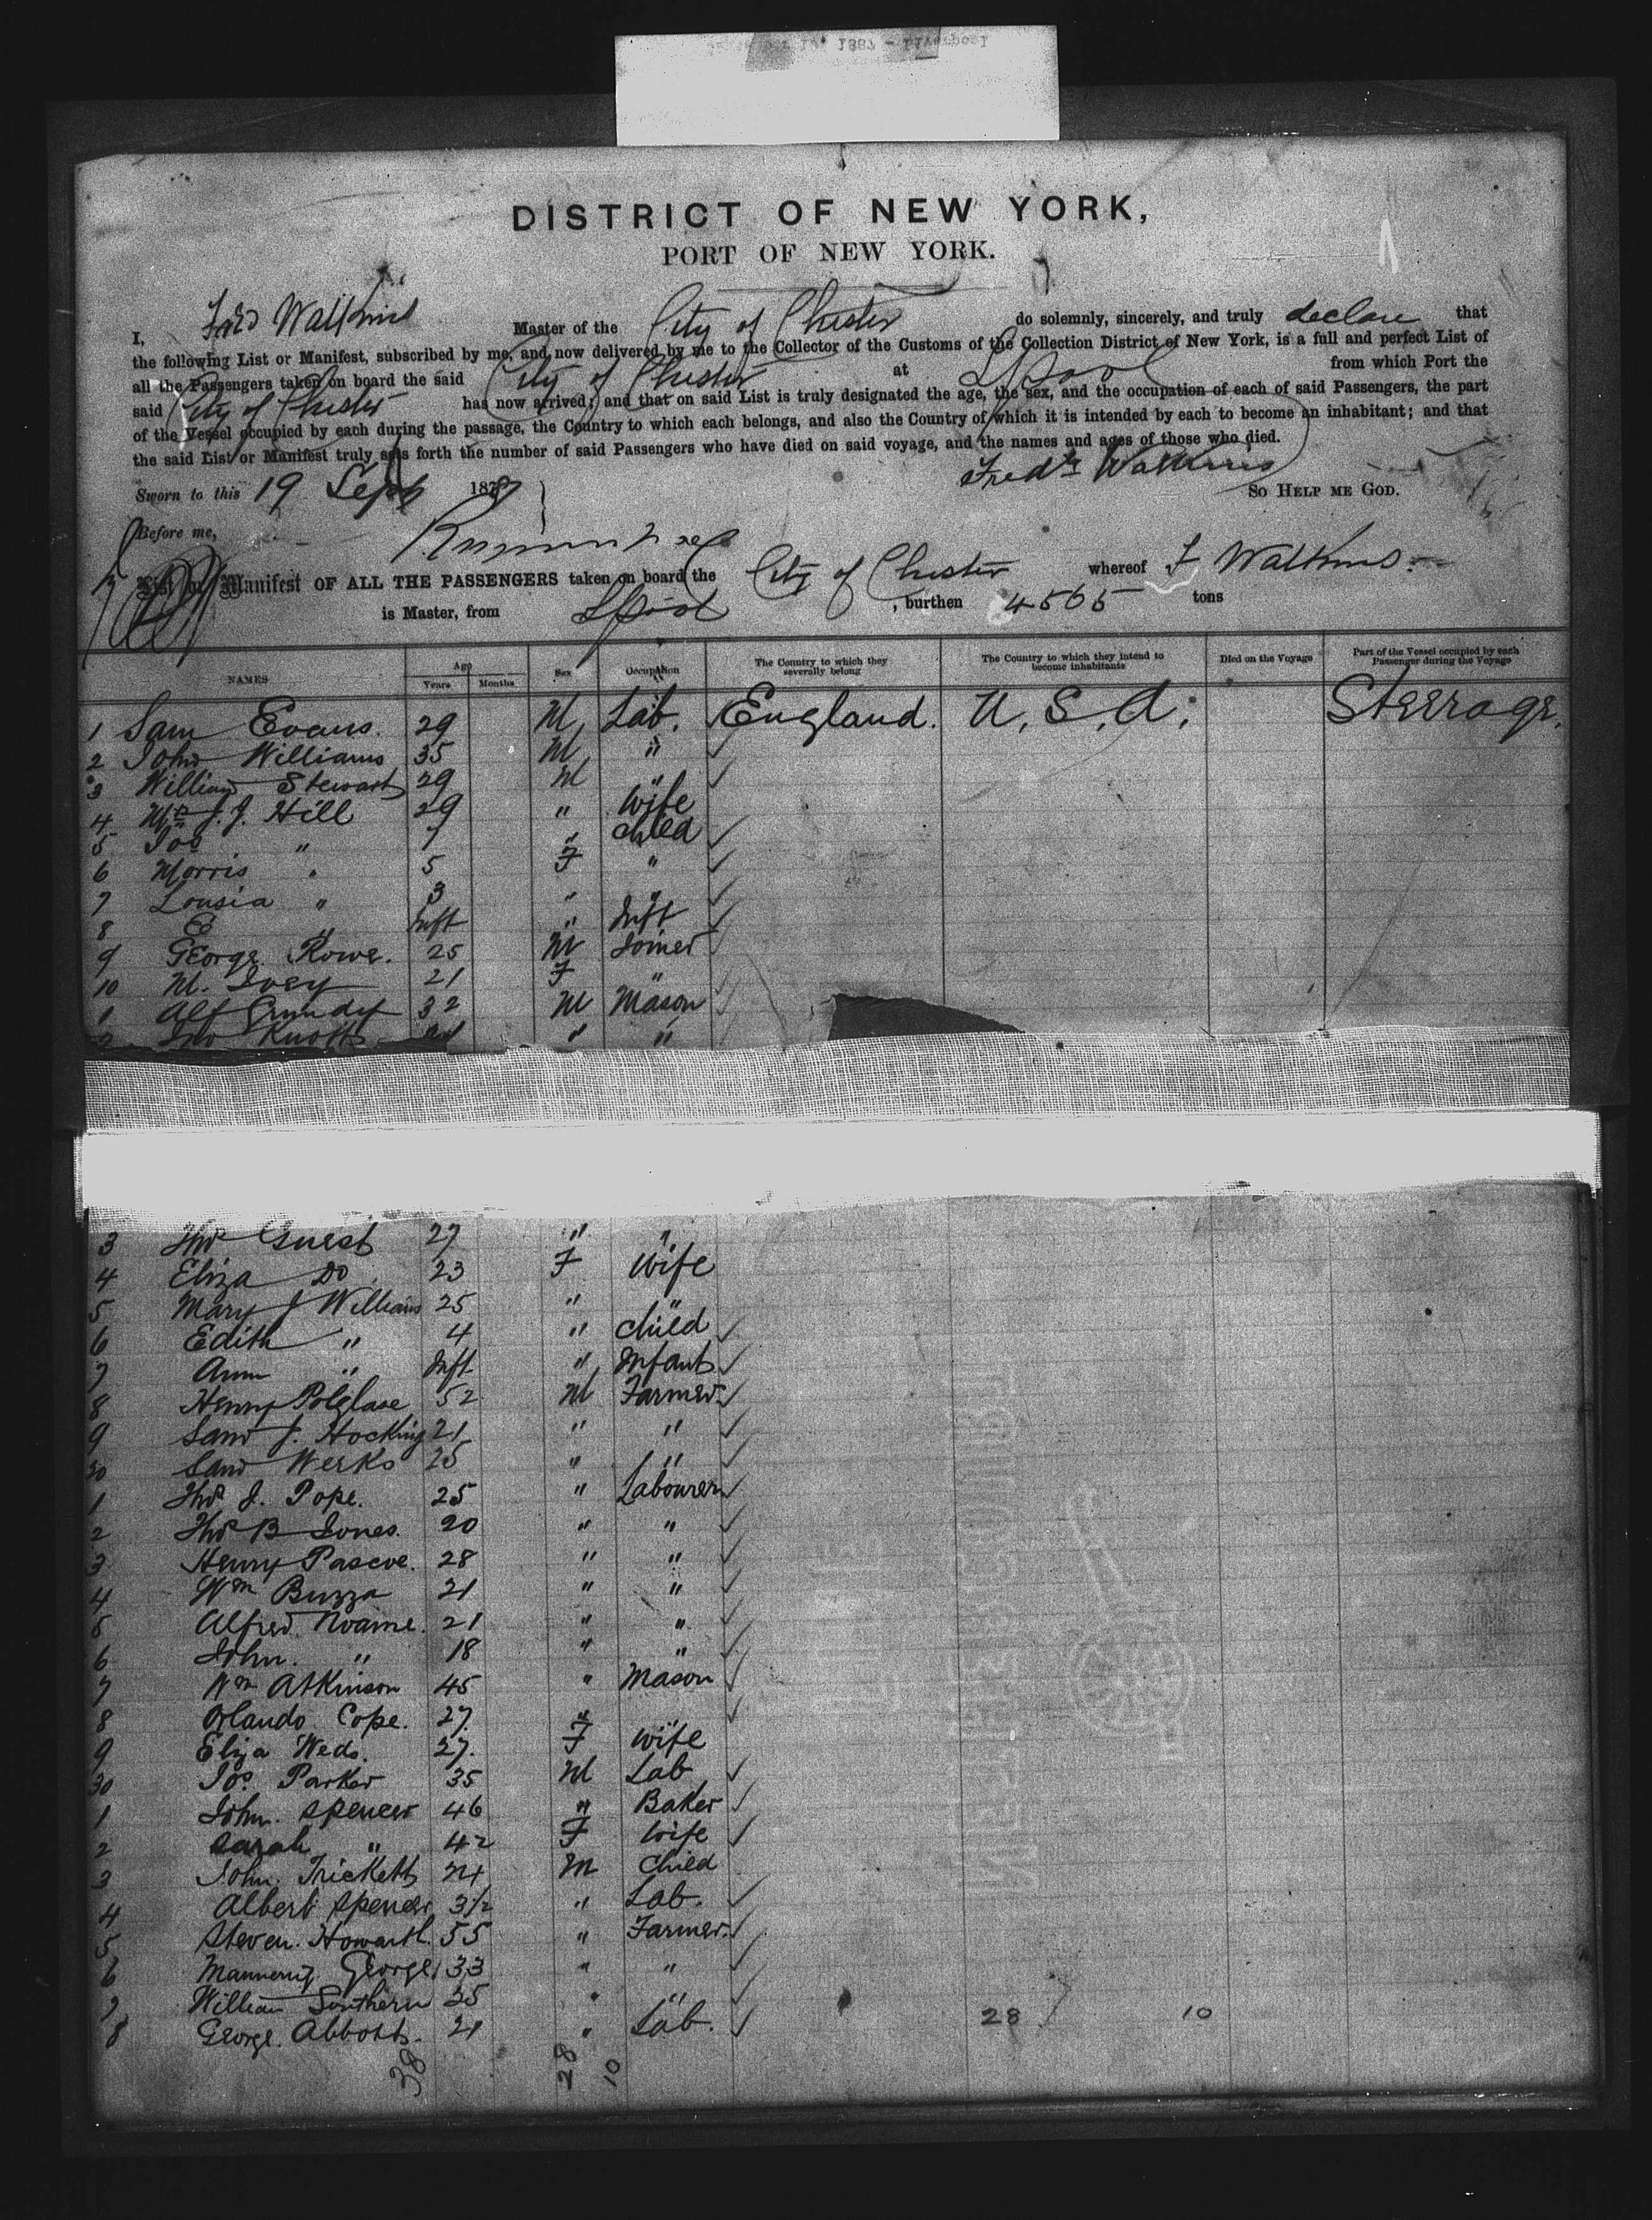 DISTRICT OF NEW YORK,
PORT OF NEW YORK.
I, Fred Watkins Master of the City of Chester do solemnly, sincerely, and truly declare that
the following List or Manifest, subscribed by me, and now delivered by me to the Collector of the Customs of the Collection District of New York, is a full and perfect List of
all the Passengers taken on board the said City of Chester at L'pool from which Port the
said City of Chester has now arrived; and that on said List is truly designated the age, the sex, and the occupation of each of said Passengers, the part
of the Vessel occupied by each during the passage, the Country to which each belongs, and also the Country of which it is intended by each to become an inhabitant; and that
the said List or Manifest truly sets forth the number of said Passengers who have died on said voyage, and the names and ages of those who died.
Fredk Watkins
Sworn to this 19 Sept 187 So Help me God.
Before me,
List or Manifest OF ALL THE PASSENGERS taken on board the City of Chester whereof F Watkins
is Master, from L'pool , burthen 4565 tons
NAMES Age Years Months Sex Occupation The Country to which they severally belong The Country to which they intend to become inhabitants Died on the Voyage Part of the Vessel occupied by each Passenger during the Voyage
1 Sam Evans. 29 M Lab. England. U.S.A. Steerage.
2 John Williams 35 M "
3 William Stewart 29 M "
4 Mrs J.J. Hill 29 " Wife
5 Jos " 7 " Child
6 Morris " 5 F "
7 Lousia " 3 " "
8 E " Inft " Inft
9 George Rowe. 25 M Joiner
10 M. Ivey 21 F "
1 Alf Grundy 32 M Mason
2 Jno Knott " "
3 Thos Guest 27 " "
4 Eliza Do 23 F Wife
5 Mary J Williams 25 " "
6 Edith " 4 " Child
7 Ann " Inft " Infant
8 Henry Polglase 52 M Farmer
9 Saml J. Hocking 21 " "
20 Saml Weeks 25 " "
1 Thos J. Pope. 25 " Labourer
2 Thos B Jones. 20 " "
3 Henry Pascoe. 28 " "
4 Wm Buzza 21 " "
5 Alfred 21 " "
6 John. " 18 " "
7 Wm Atkinson 45 " Mason
8 Orlando Cope. 27. " "
9 Eliza Weds. 27. F Wife
30 Jos. Parker 35 M Lab
1 John. Spencer 46 " Baker
2 Sarah " 42 F Wife
3 John. Trickett 24 M Child
4 Albert Spencer 3½ " Lab.
5 Steven. Howarth. 55 " Farmer.
6 George 33 " "
7 William Southern 35 " "
8 George. Abbott. 21 " Lab. 28 10
38 28 10